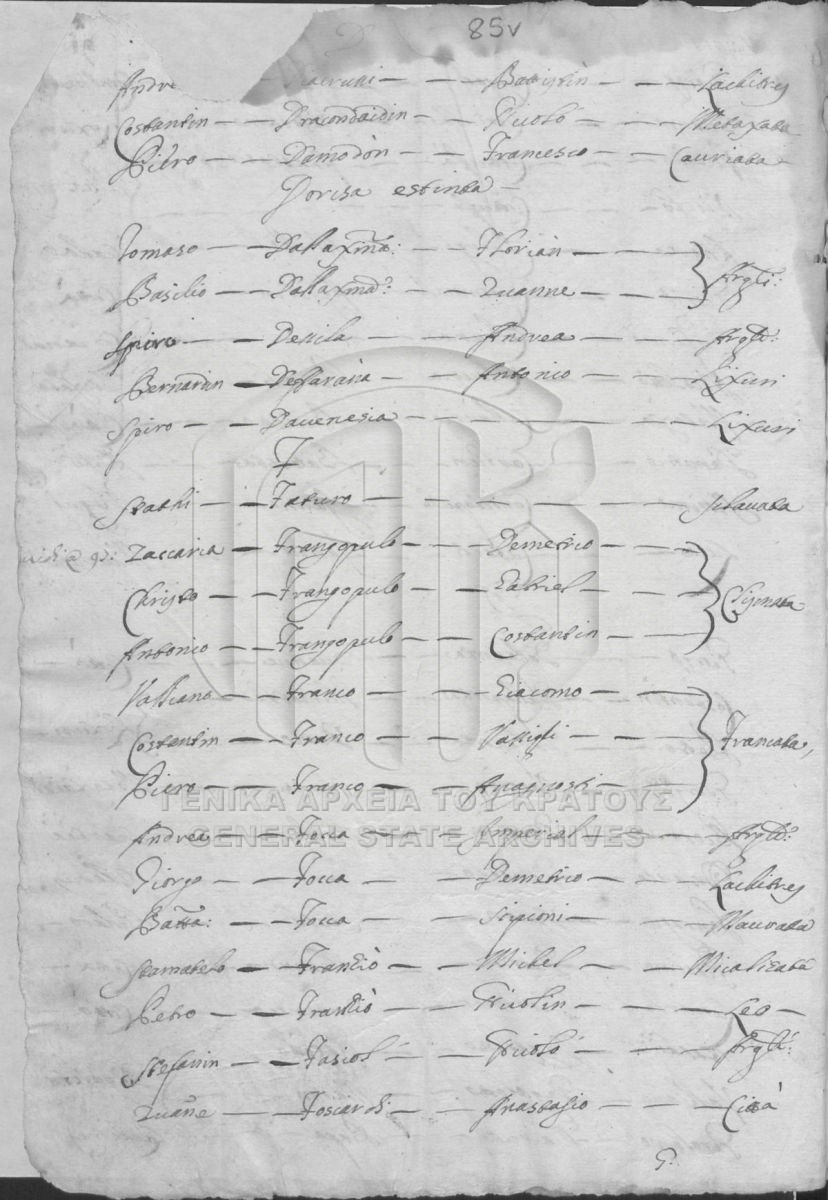 85v
Andre Battistin — Lachitres
Costantin — Dracondaidin — Nicolò — Metaxata
Piero — Damodòn — Francesco — Cauriata
Dorisa estinta —
Tomaso — Dallaxma: — Florian —
Basilio — Dallaxma: — Zuanne — Argli:
Spiro — Dessila — Andrea — Argli:
Bernardin — Deffarana — Antonio — Lixuri
Spiro — Dauenesia — Lixuri
F
Stathi — Faturo — Sclauata
Zaccaria — Frangopulo — Demetrio —
Christo — Frangopulo — Gabriel — Clismata
Antonio — Frangopulo — Costantin —
Vassiano — Franco — Giacomo —
Costantin — Franco — Vassigli — Francata,
Piero — Franco — Anagnosti —
Andrea — Focca — Imperial — Argli:
Giorgo — Focca — Demetrio — Lachitres
Batta: — Focca — Scipioni — Maurata
Stamatelo — Franciò — Michel — Micalizata
Petro — Franciò — Nicolin — Leo —
Steffanin — Fasiol — Nicolò — Argli:
Zuanne — Foscardi — Anastasio — Città
G:
ΓΕΝΙΚΑ ΑΡΧΕΙΑ ΤΟΥ ΚΡΑΤΟΥΣ
GENERAL STATE ARCHIVES